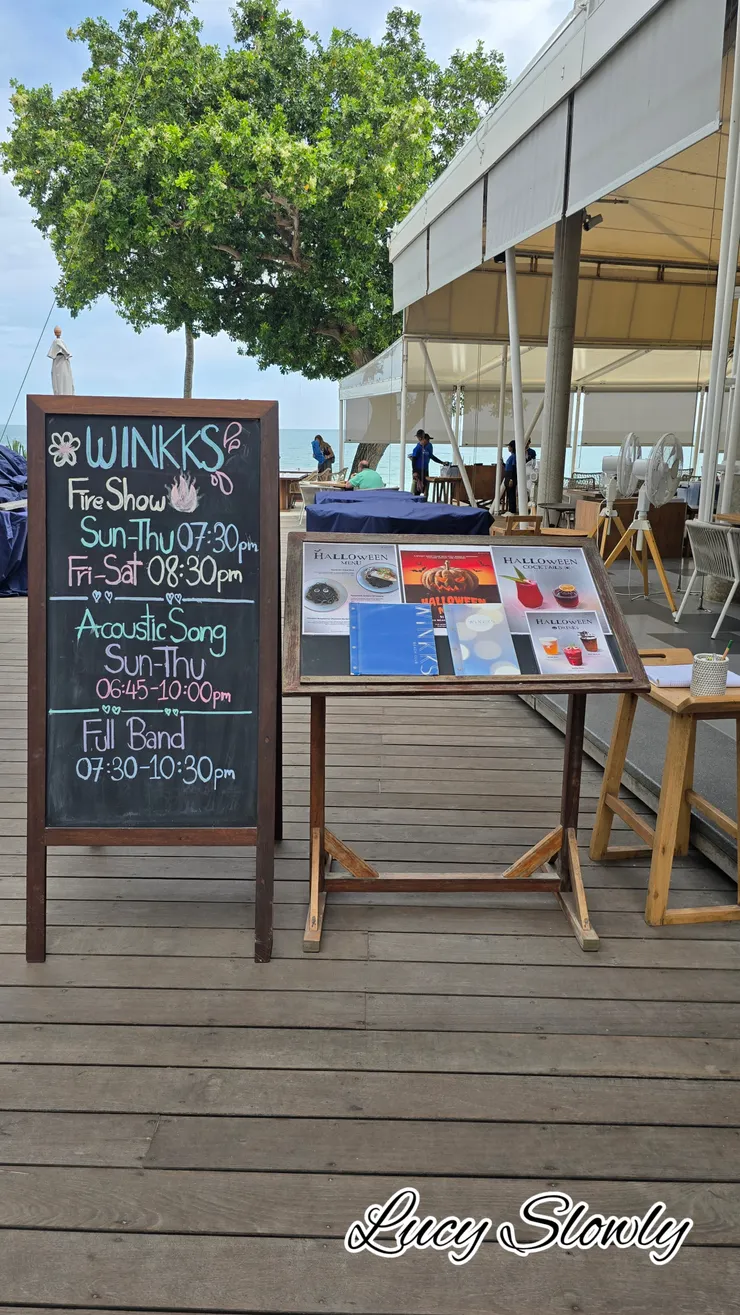 WINKKS
Fire Show
Sun-Thu 07:30pm
Fri-Sat 08:30pm
Acoustic Song
Sun-Thu
06:45-10:00pm
Full Band
07:30-10:30pm
HALLOWEEN
MENU
HALLOWEEN
HALLOWEEN
COCKTAILS
WINKKS
HALLOWEEN
DRINKS
Lucy Slowly